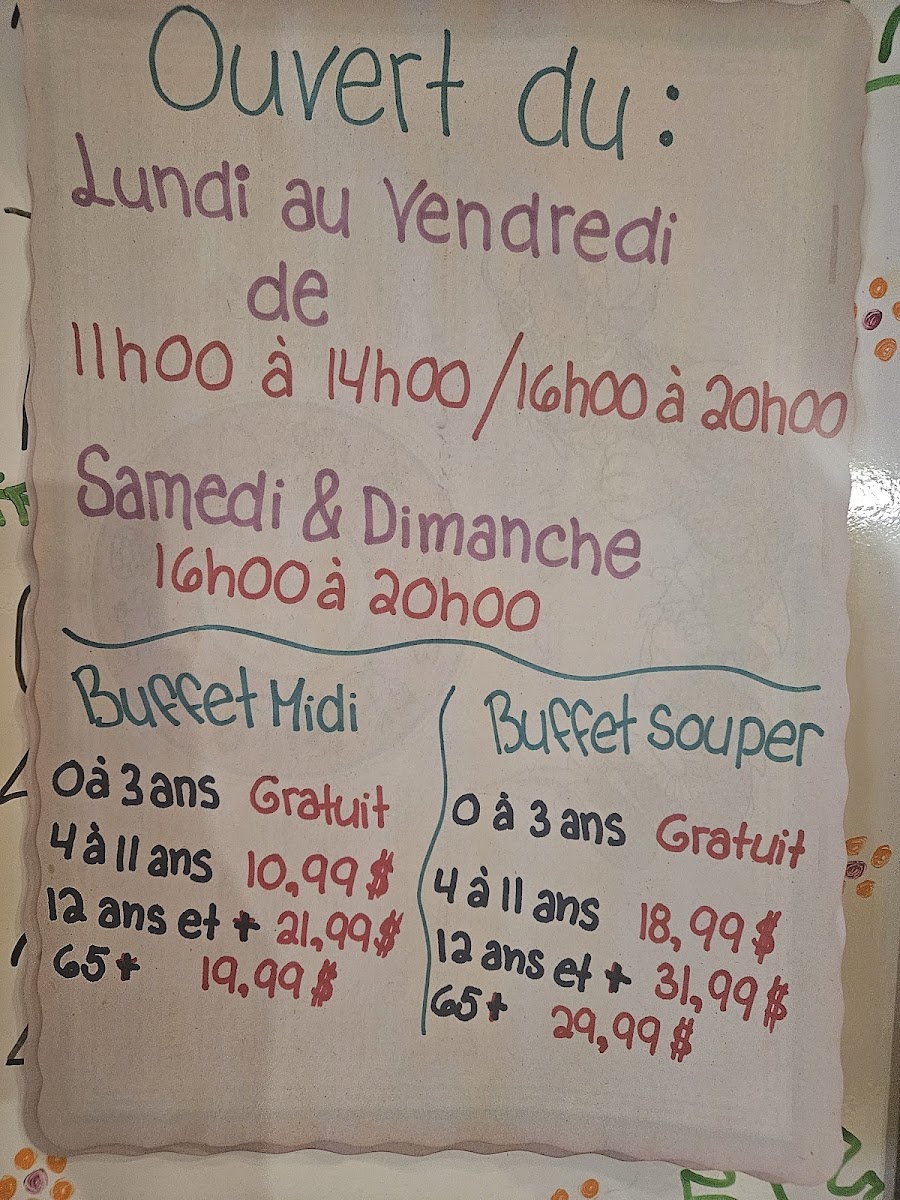 Ouvert du :
Lundi au Vendredi
de
11h00 à 14h00 / 16h00 à 20h00
Samedi & Dimanche
16h00 à 20h00
Buffet Midi
0 à 3 ans Gratuit
4 à 11 ans 10,99 $
12 ans et + 21,99 $
65 + 19,99 $
Buffet souper
0 à 3 ans Gratuit
4 à 11 ans 18,99 $
12 ans et + 31,99 $
65 + 29,99 $